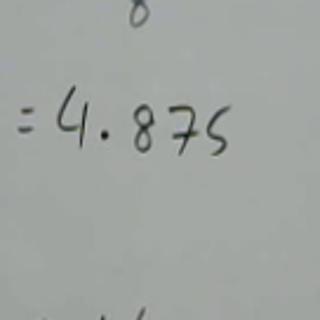 8
= 4.875